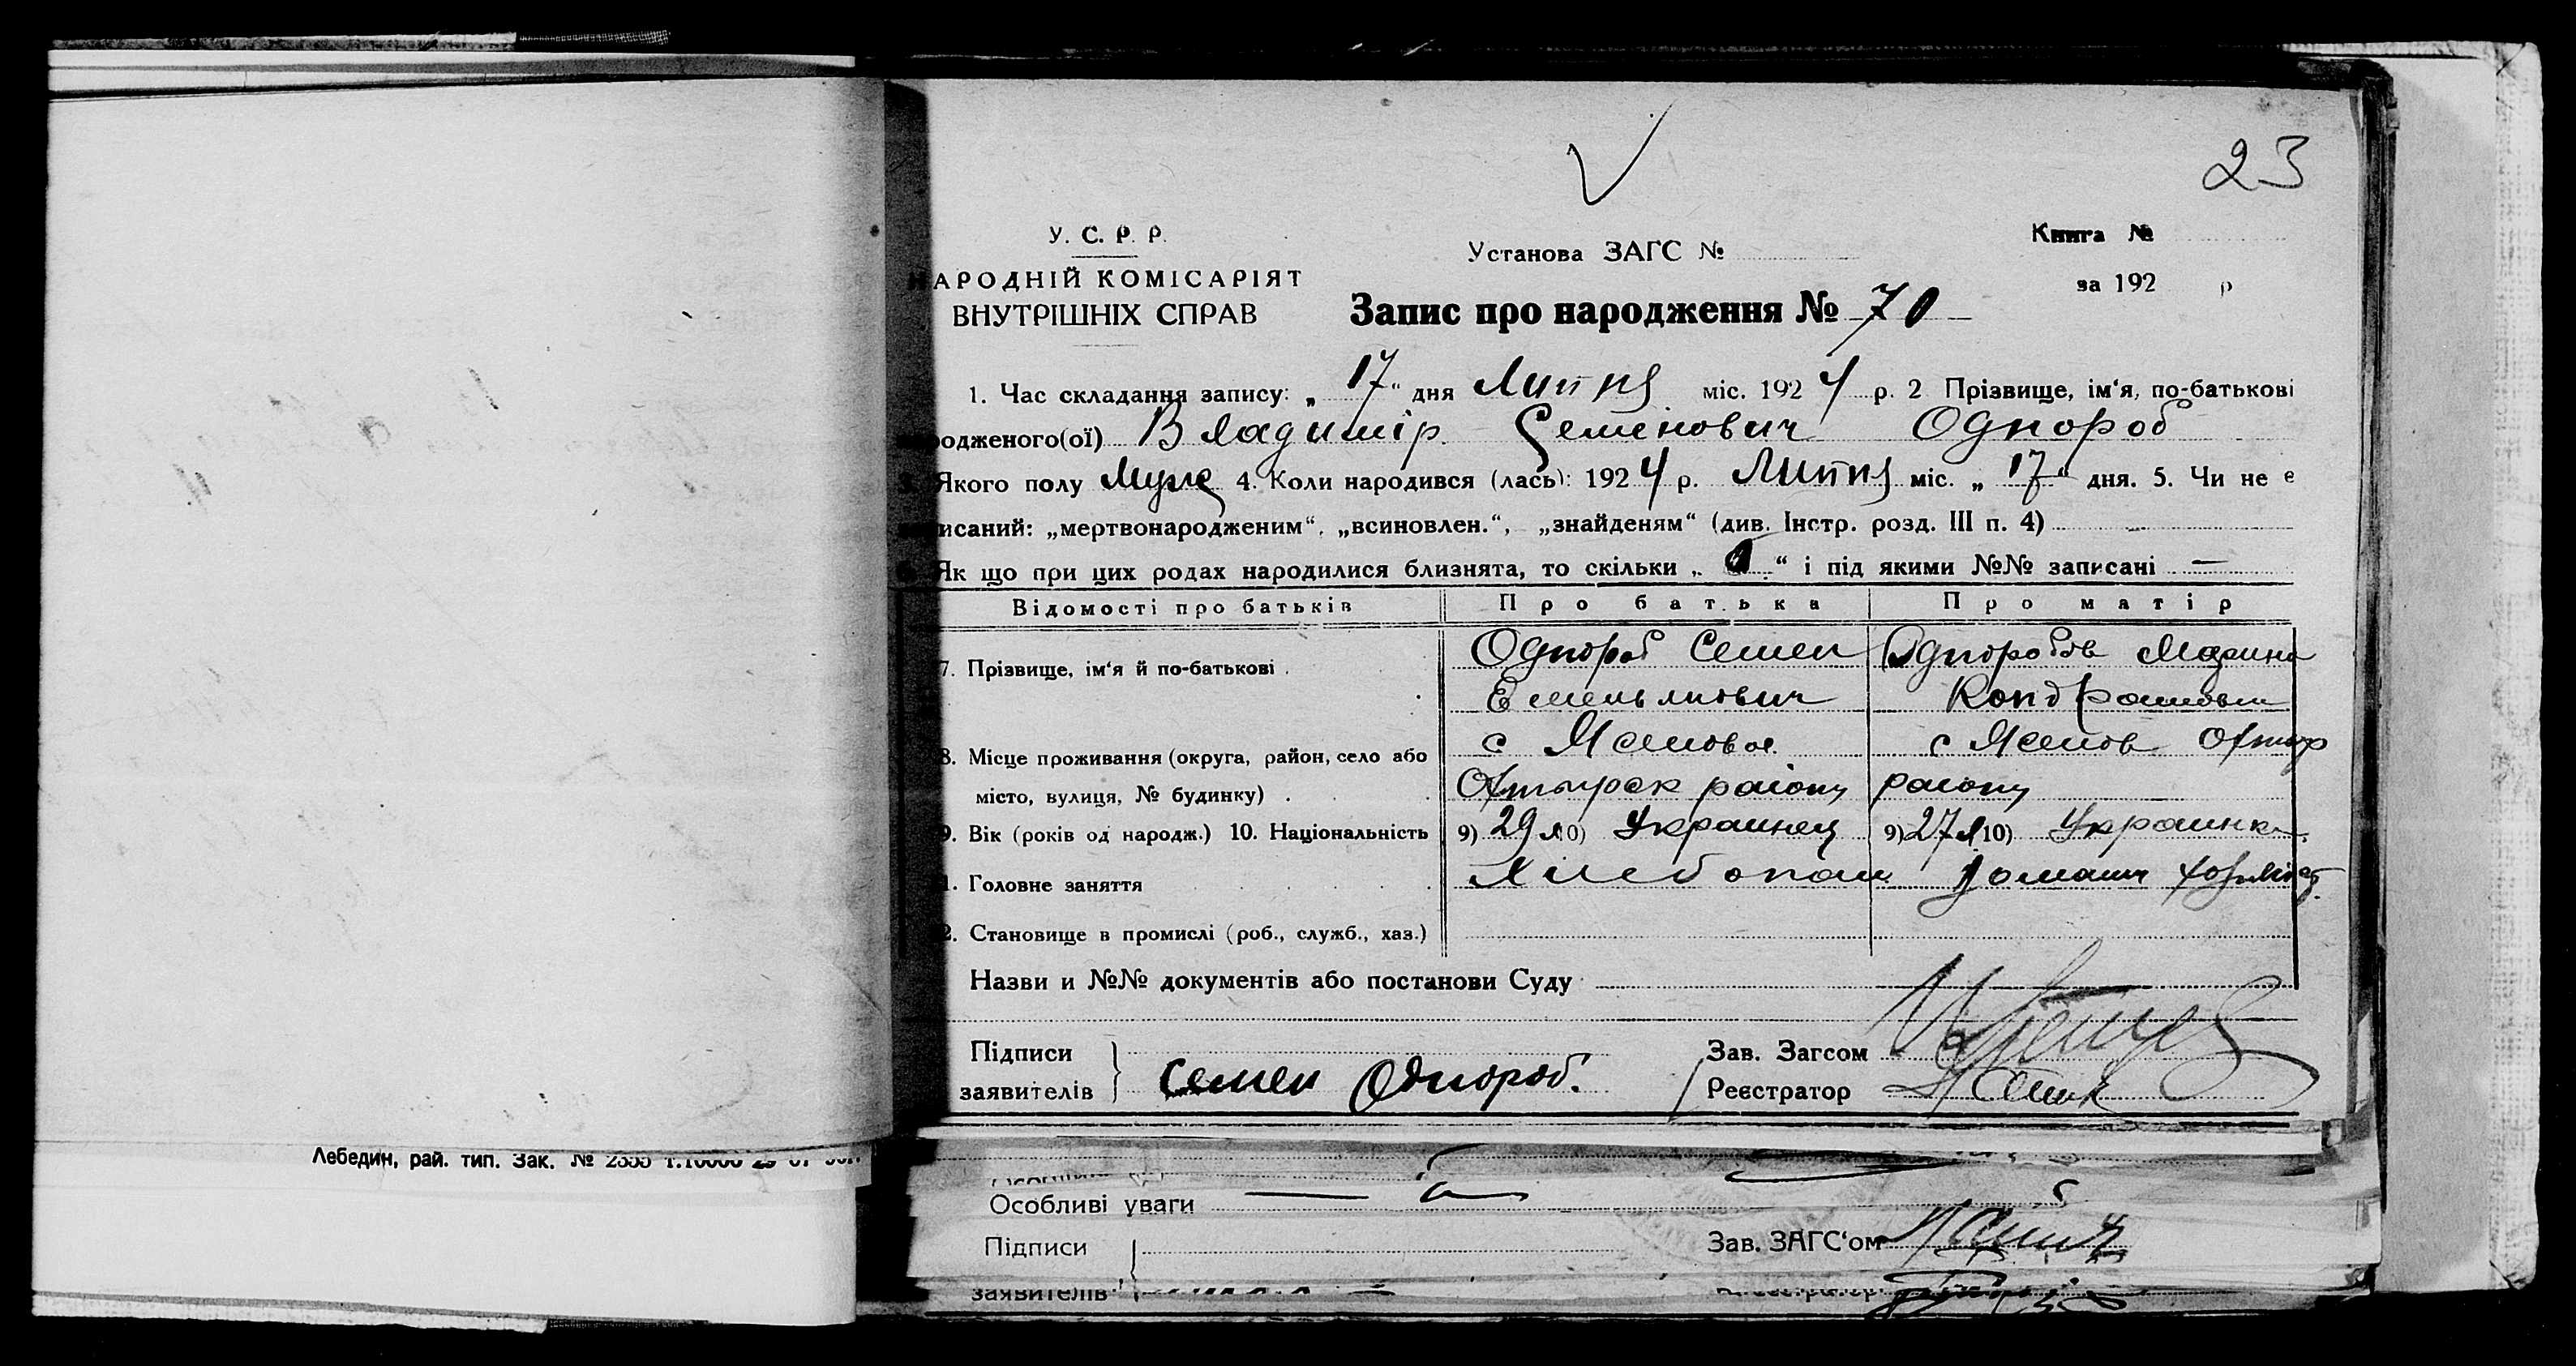 23
У. С. Р. Р.
НАРОДНІЙ КОМІСАРІЯТ
ВНУТРІШНІХ СПРАВ
Установа ЗАГС №
Книга №
за 192 р
Запис про народження № 70
1. Час складання запису: „17“ дня Липня міс. 1924 р. 2 Прізвище, ім‘я, по-батькові
родженого(ої) Владимір Семенович Однороб
Якого полу Муж 4. Коли народився (лась): 1924 р. Липня міс. „17“ дня. 5. Чи не є
исаний: „мертвонародженим“, „всиновлен.“, „знайденям“ (див. Інстр. розд. III п. 4)
Як що при цих родах народилися близнята, то скільки „ “ і під якими №№ записані —
Відомості про батьків Про батька Про матір
7. Прізвище, ім‘я й по-батькові . Однороб Семен Емельянович Марина
8. Місце проживання (округа, район, село або
місто, вулиця, № будинку) . району району
9. Вік (років од народж.) 10. Національність 9) 29 л 10) Украинец 9) 27 л 10) Украинка
1. Головне заняття Хлебопаш Домашн
2. Становище в промислі (роб., служб., хаз.)
Назви и №№ документів або постанови Суду
Підписи
заявителів Семен Однороб.
Зав. Загсом
Реєстратор
Лебедин, рай. тип. Зак. №
Особливі уваги
Підписи
Зав. ЗАГС‘ом
заявителів